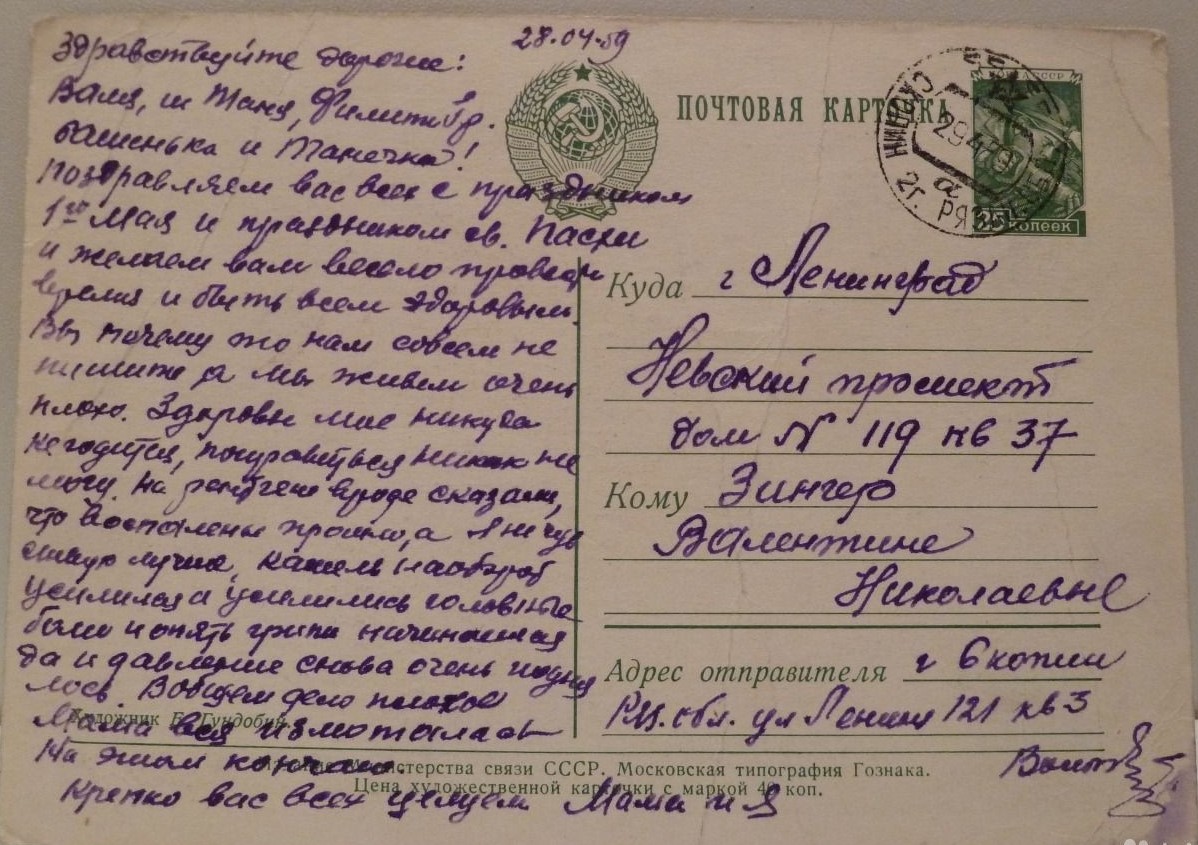 28.04.59
Здравствуйте дорогие:
Валя, Таня,
башенька и Танечка!
Поздравляем вас всех с праздником
1го Мая и праздником св. Пасхи
и желаем вам весело провести
время и быть всем здоровым.
Вы почему то нам совсем не
пишите а мы живем очень
плохо. Здоровье мое никуда
не годится, поправиться никак не
могу. На рентгене вроде сказали,
что воспаление прошло, а я не чув
ствую лучше, кашель наоборот
усилился и усилились головные
боли и опять грипп начинался
да и давление снова очень подня
лось. Вобщем дело плохое
Мама вся измоталась
На этом кончаю.
Крепко вас всех целуем Мама и Я
ПОЧТОВАЯ КАРТОЧКА
ПОЧТА СССР
29.4.59
а
25 копеек
Куда г Ленинград
Невский проспект
дом N 119 кв 37
Кому Зингер
Валентине
Николаевне
Адрес отправителя г Скопин
Ряз. обл. ул Ленина 121 кв 3
Художник Е. Гундобин
Издание Министерства связи СССР. Московская типография Гознака.
Цена художественной карточки с маркой 40 коп.